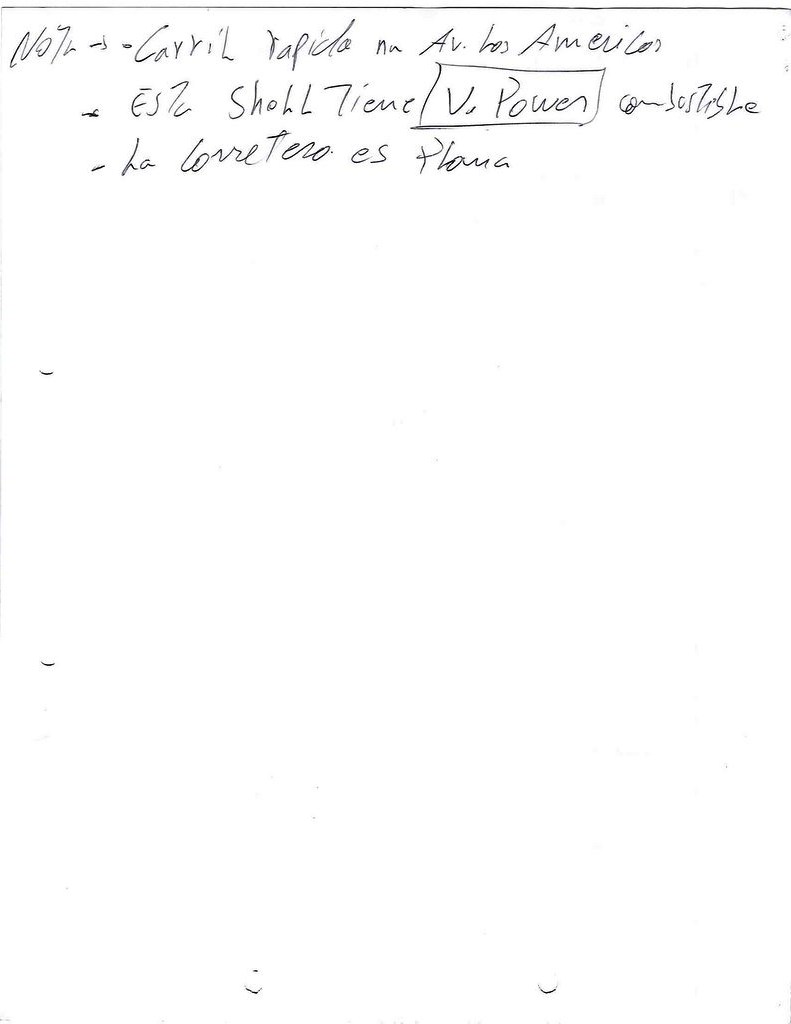 Nota → - Carril rapido na Av. Las Americas
- Esta Shell Tiene V. Power combustible
- La Carretera es Plana